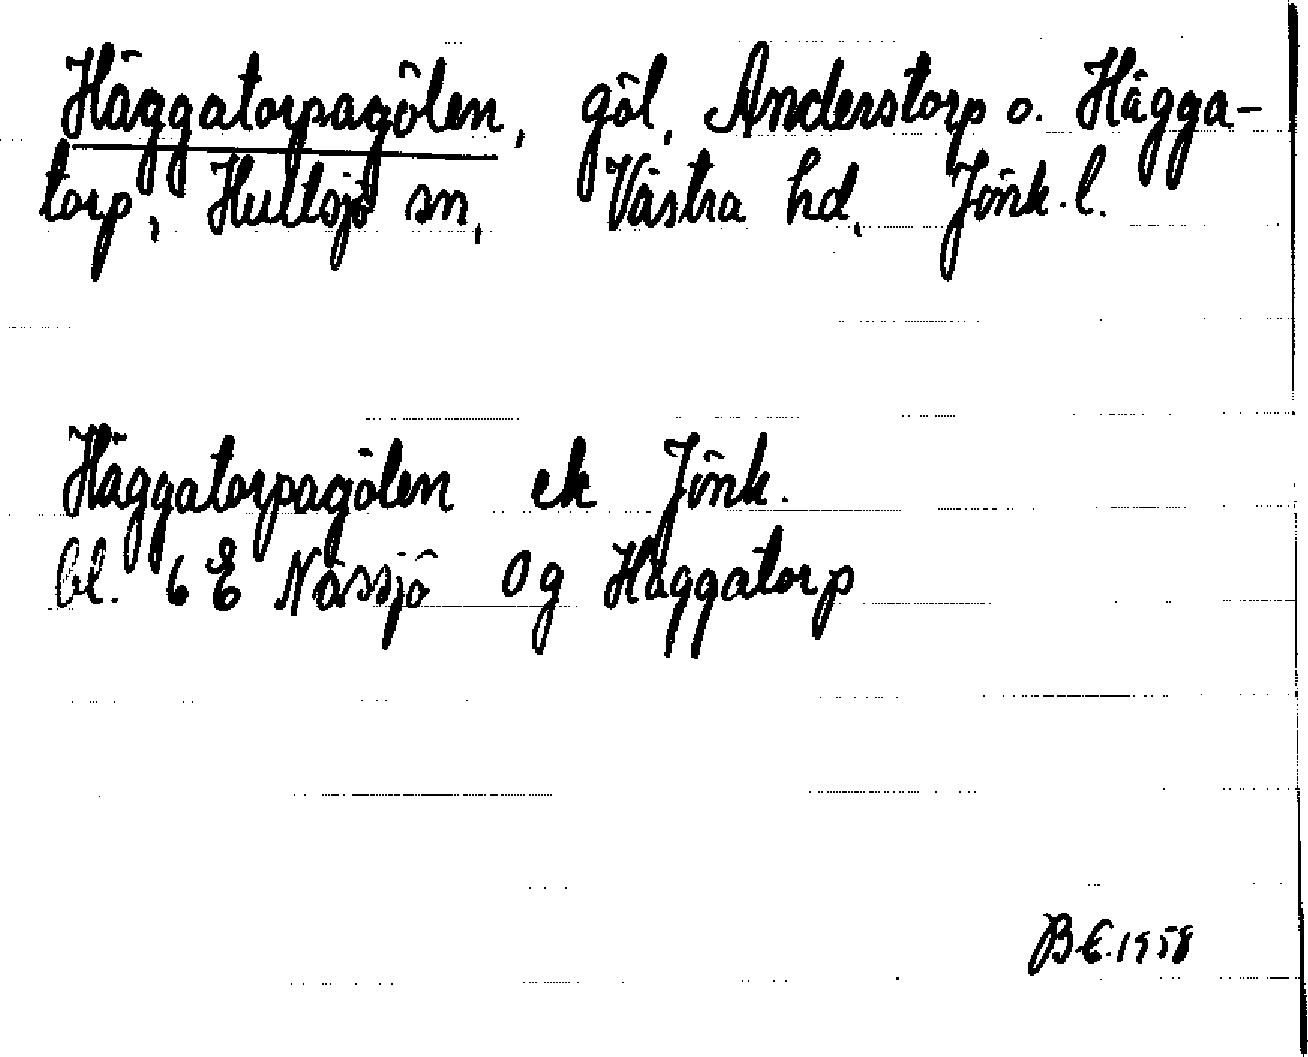 Häggatorpagölen, göl, Anderstorp o. Hägga-
torp, Hultsjö sn, Västra hd, Jönk. l.
Häggatorpagölen ek Jönk.
bl. 6 E Nässjö 0 g Häggatorp
B.E. 1958